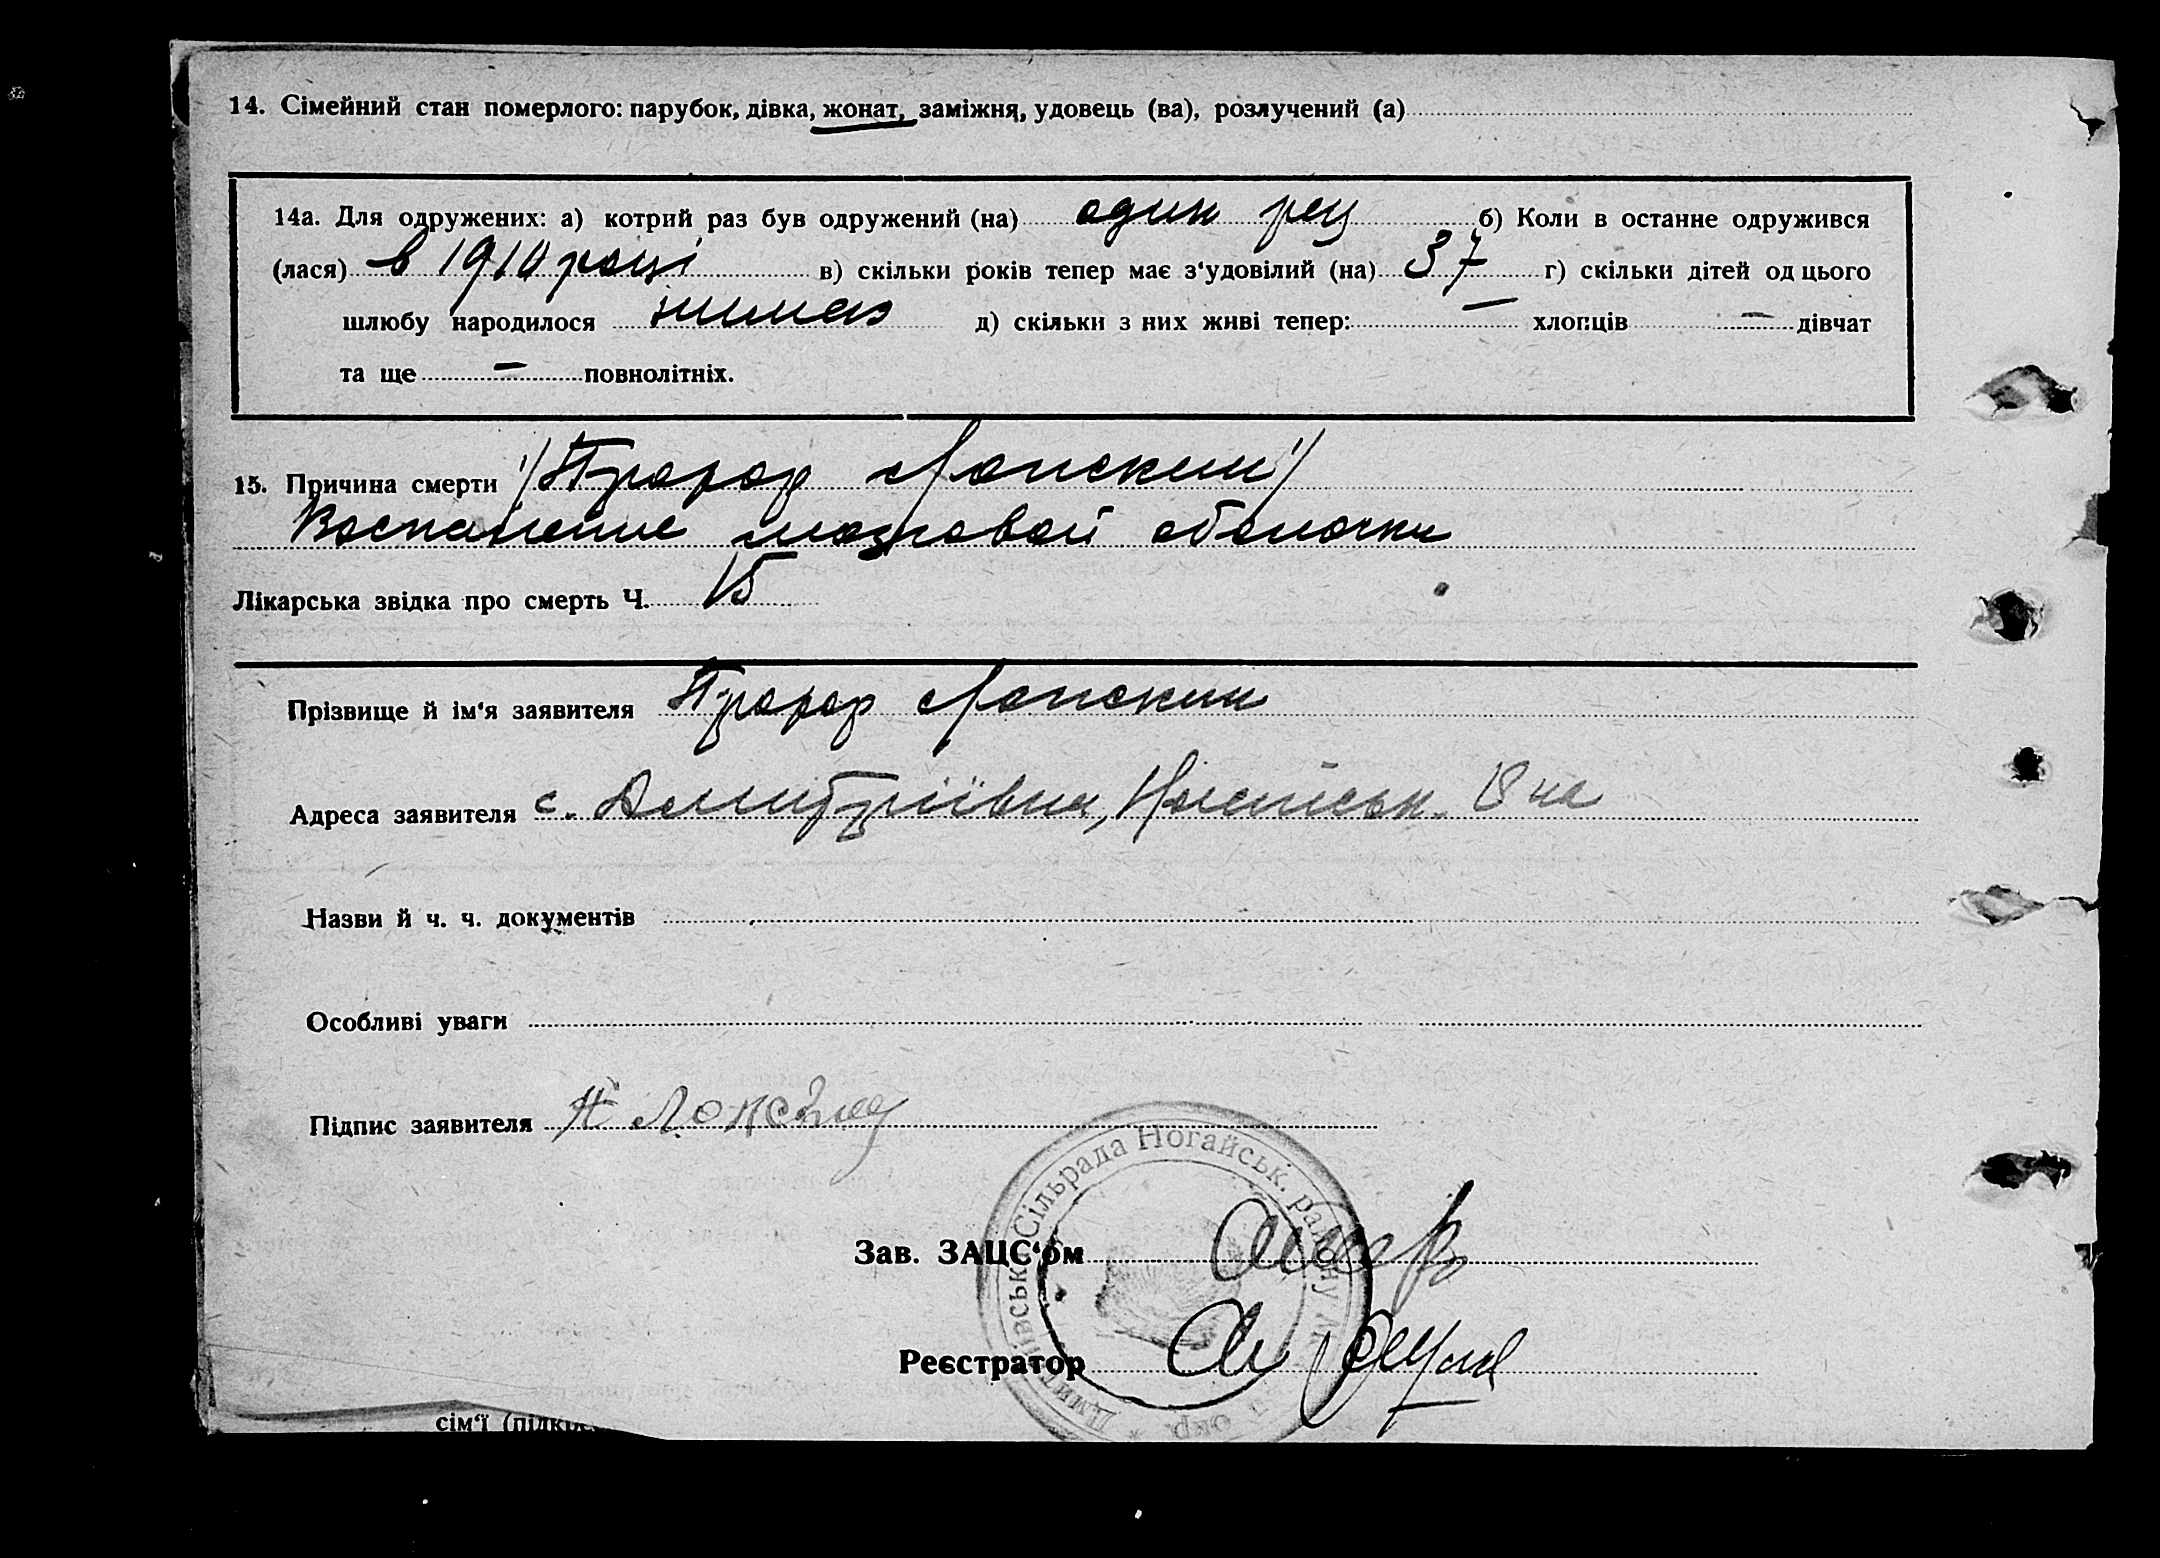 14. Сімейний стан померлого: парубок, дівка, жонат, заміжня, удовець (ва), розлучений (а)
14а. Для одружених: а) котрий раз був одружений (на) один раз б) Коли в останне одружився
(лася) в 1910 році в) скільки років тепер має з‘удовілий (на) 37 г) скільки дітей од цього
шлюбу народилося немає д) скільки з них живі тепер: — хлопців — дівчат
та ще — повнолітніх.
15. Причина смерти Прохор Лопский
Воспаление мозговой оболочки
Лікарська звідка про смерть Ч. 15
Прізвище й ім‘я заявителя Прохор Лопский
Адреса заявителя с. Дмитріївка,
Назви й ч. ч. документів
Особливі уваги
Підпис заявителя
Сільрада Ногайськ. району
Зав. ЗАЦС‘ом
Реєстратор
сім‘ї